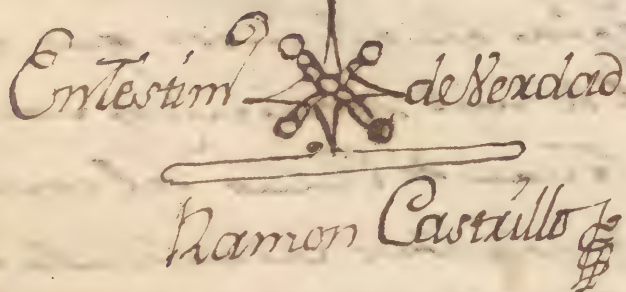 En Testimo de Verdad
Ramon Castrillo